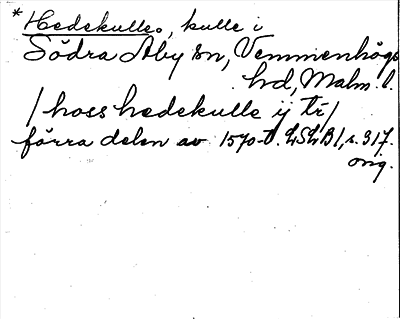 * Hedekulle, kulle i
Södra Åby sn, Vemmenhögs
hd, Malm. l.
/hoss hedekulle ij tr/
förra delen av 1570-t. LSLB1, s. 317.
orig.